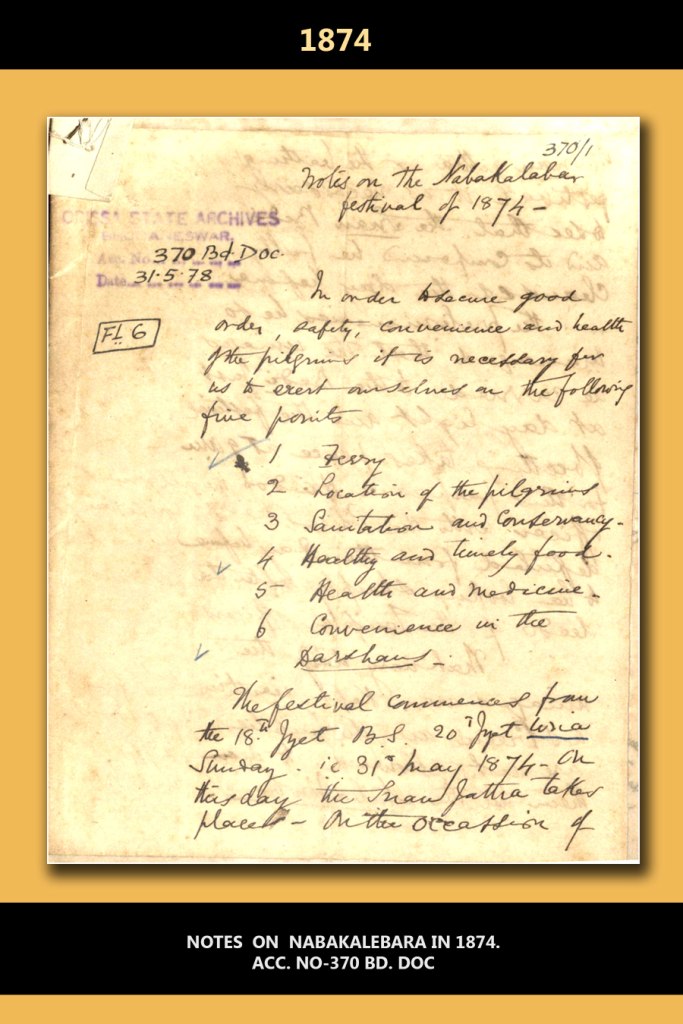 1874
370/1
Notes on the Nabakalabar
festival of 1874 –
ORISSA STATE ARCHIVES
BHUBANESWAR.
Acc. No. 370 Bd. Doc.
Date 31-5-78
Fl. 6
In order to secure good
order, safety, convenience and health
of the pilgrims it is necessary for
us to exert ourselves on the following
five points
1 Ferry
2 Location of the pilgrims
3 Sanitation and Conservancy.
4 Healthy and timely food.
5 Health and medicine.
6 Convenience in the
Darshans.
The festival commences from
the 18th Jyet B.S. 20th Jyet Uria
Sunday. ie 31st May 1874 – On
this day the Snan Jattra takes
place – On the occassion of
NOTES ON NABAKALEBARA IN 1874.
ACC. NO-370 BD. DOC